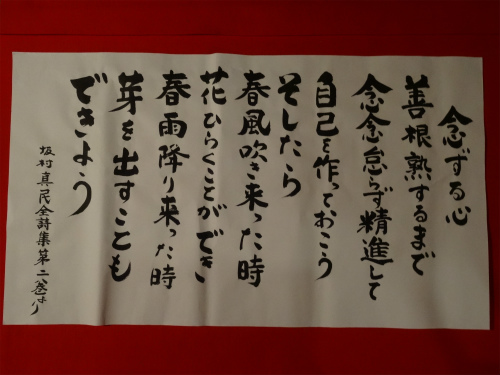 念ずる心
善根熟するまで
念念怠らず精進して
自己を作っておこう
そしたら
春風吹き来った時
花ひらくことができ
春雨降り来った時
芽を出すことも
できよう
坂村真民全詩集第二巻より